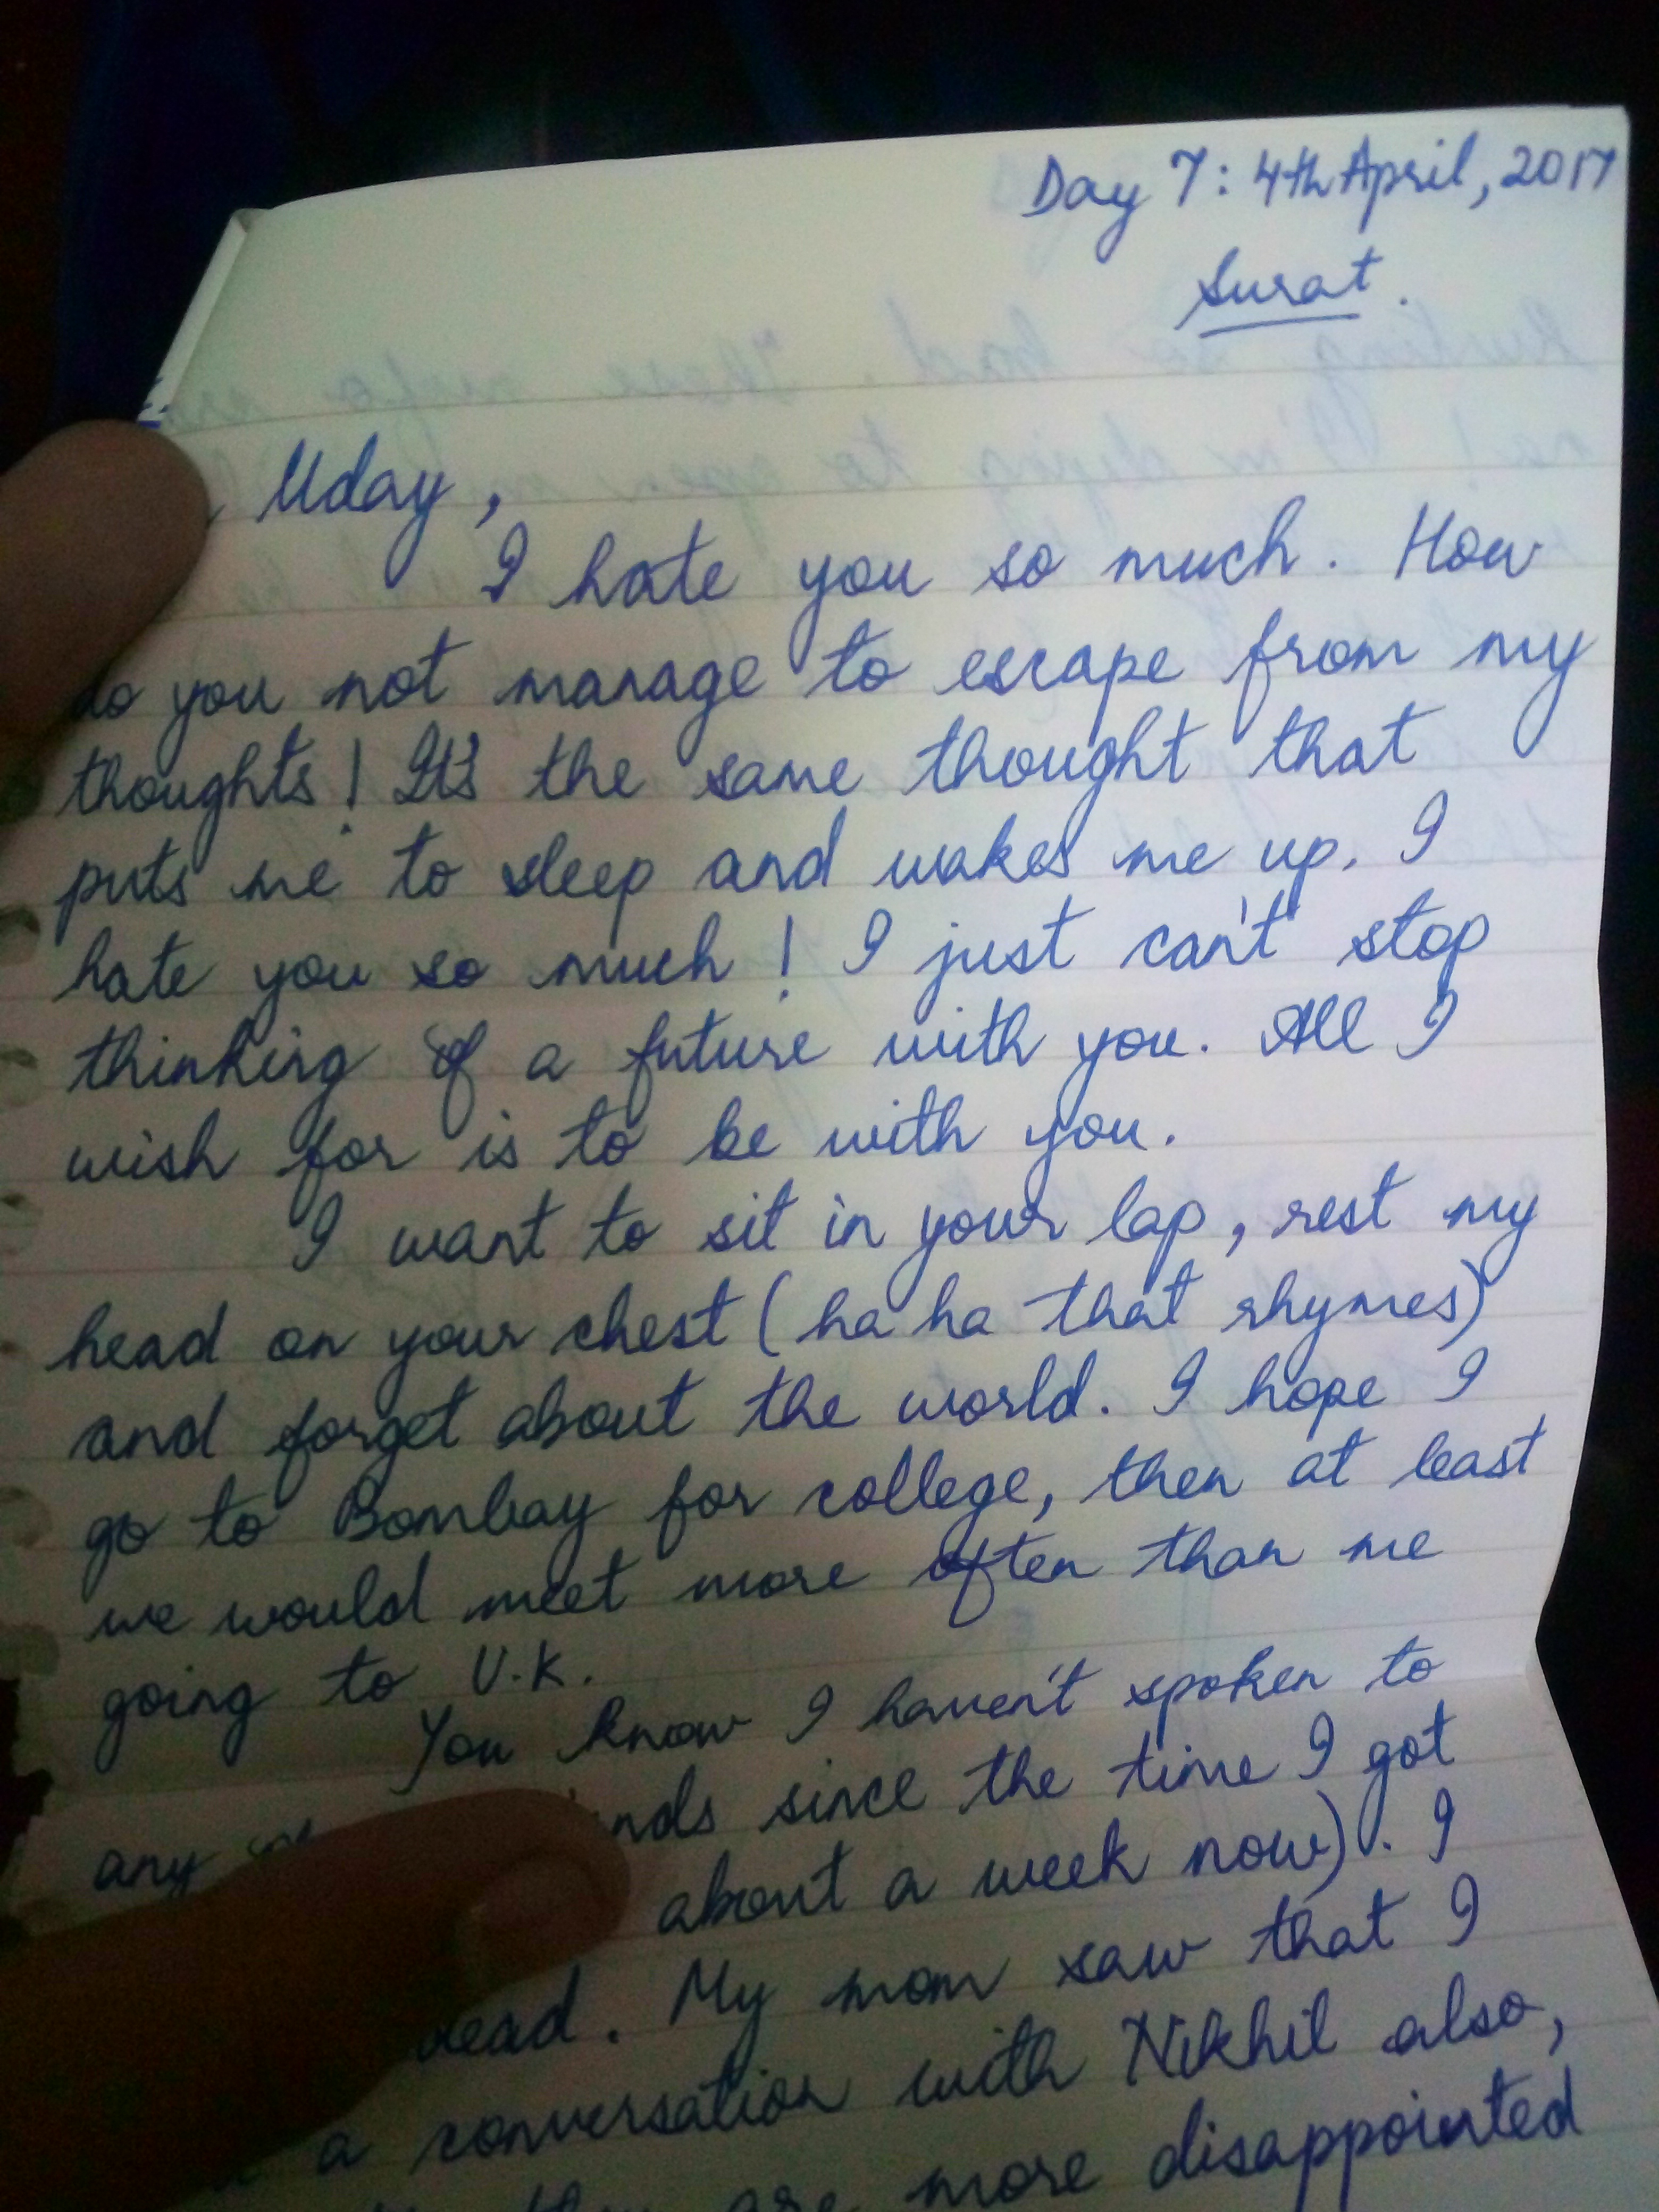 Day 7: 4th April, 2017
Surat.
Uday,
I hate you so much. How
do you not manage to escape from my
thoughts! It's the same thought that
puts me to sleep and wakes me up. I
hate you so much! I just can't stop
thinking of a future with you. All I
wish for is to be with you.
I want to sit in your lap, rest my
head on your chest (ha ha that rhymes)
and forget about the world. I hope I
go to Bombay for college, then at least
we would meet more often than me
going to U.K.
You know I haven't spoken to
any nds since the time I got
about a week now). I
dead. My mom saw that I
a conversation with Nikhil also,
are more disappointed